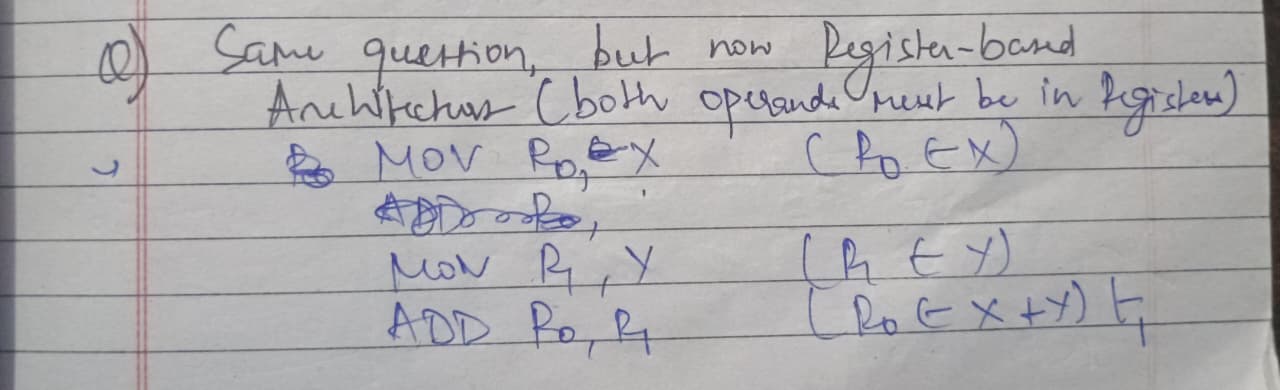 Q) Same question, but now Register-based
Architecture (both operands must be in Registers)
MOV R0, X (R0 ← X)
ADD R0,
MOV R1, Y (R1 ← Y)
ADD R0, R1 (R0 ← X + Y) t1